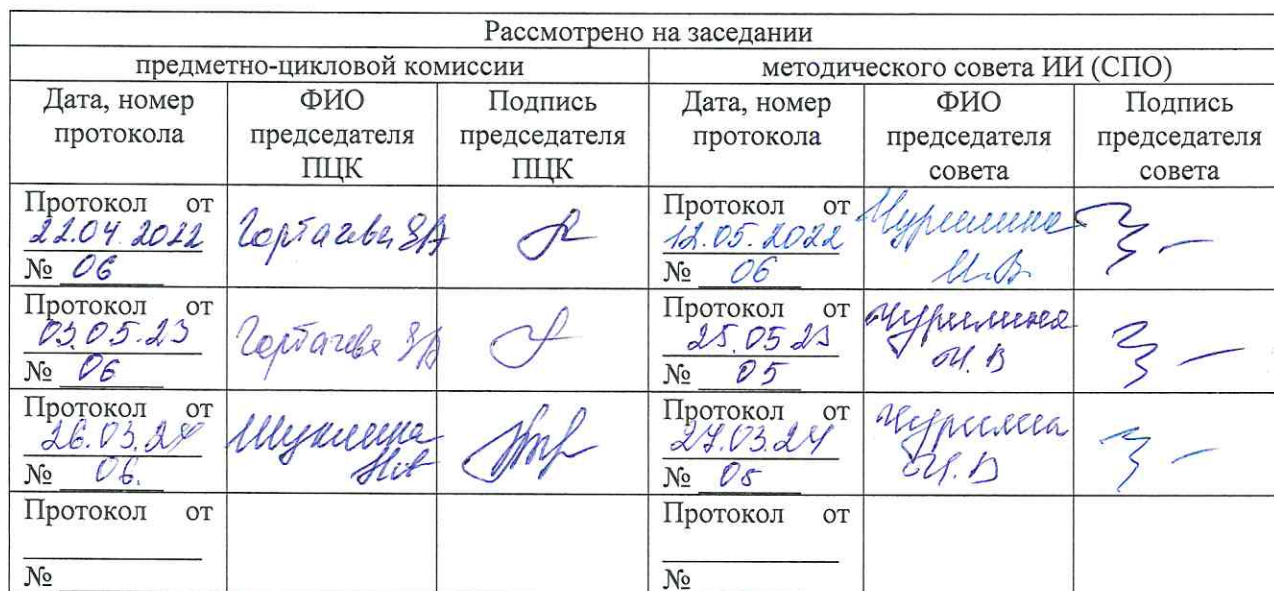 Рассмотрено на заседании
предметно-цикловой комиссии
методического совета ИИ (СПО)
Дата, номер протокола
ФИО председателя ПЦК
Подпись председателя ПЦК
Дата, номер протокола
ФИО председателя совета
Подпись председателя совета
Протокол от
22.04.2022
№ 06
Протокол от
12.05.2022
№ 06
Протокол от
03.05.23
№ 06
Протокол от
25.05.23
№ 05
Протокол от
26.03.24
№ 06.
Протокол от
27.03.24
№ 05
Протокол от
№
Протокол от
№